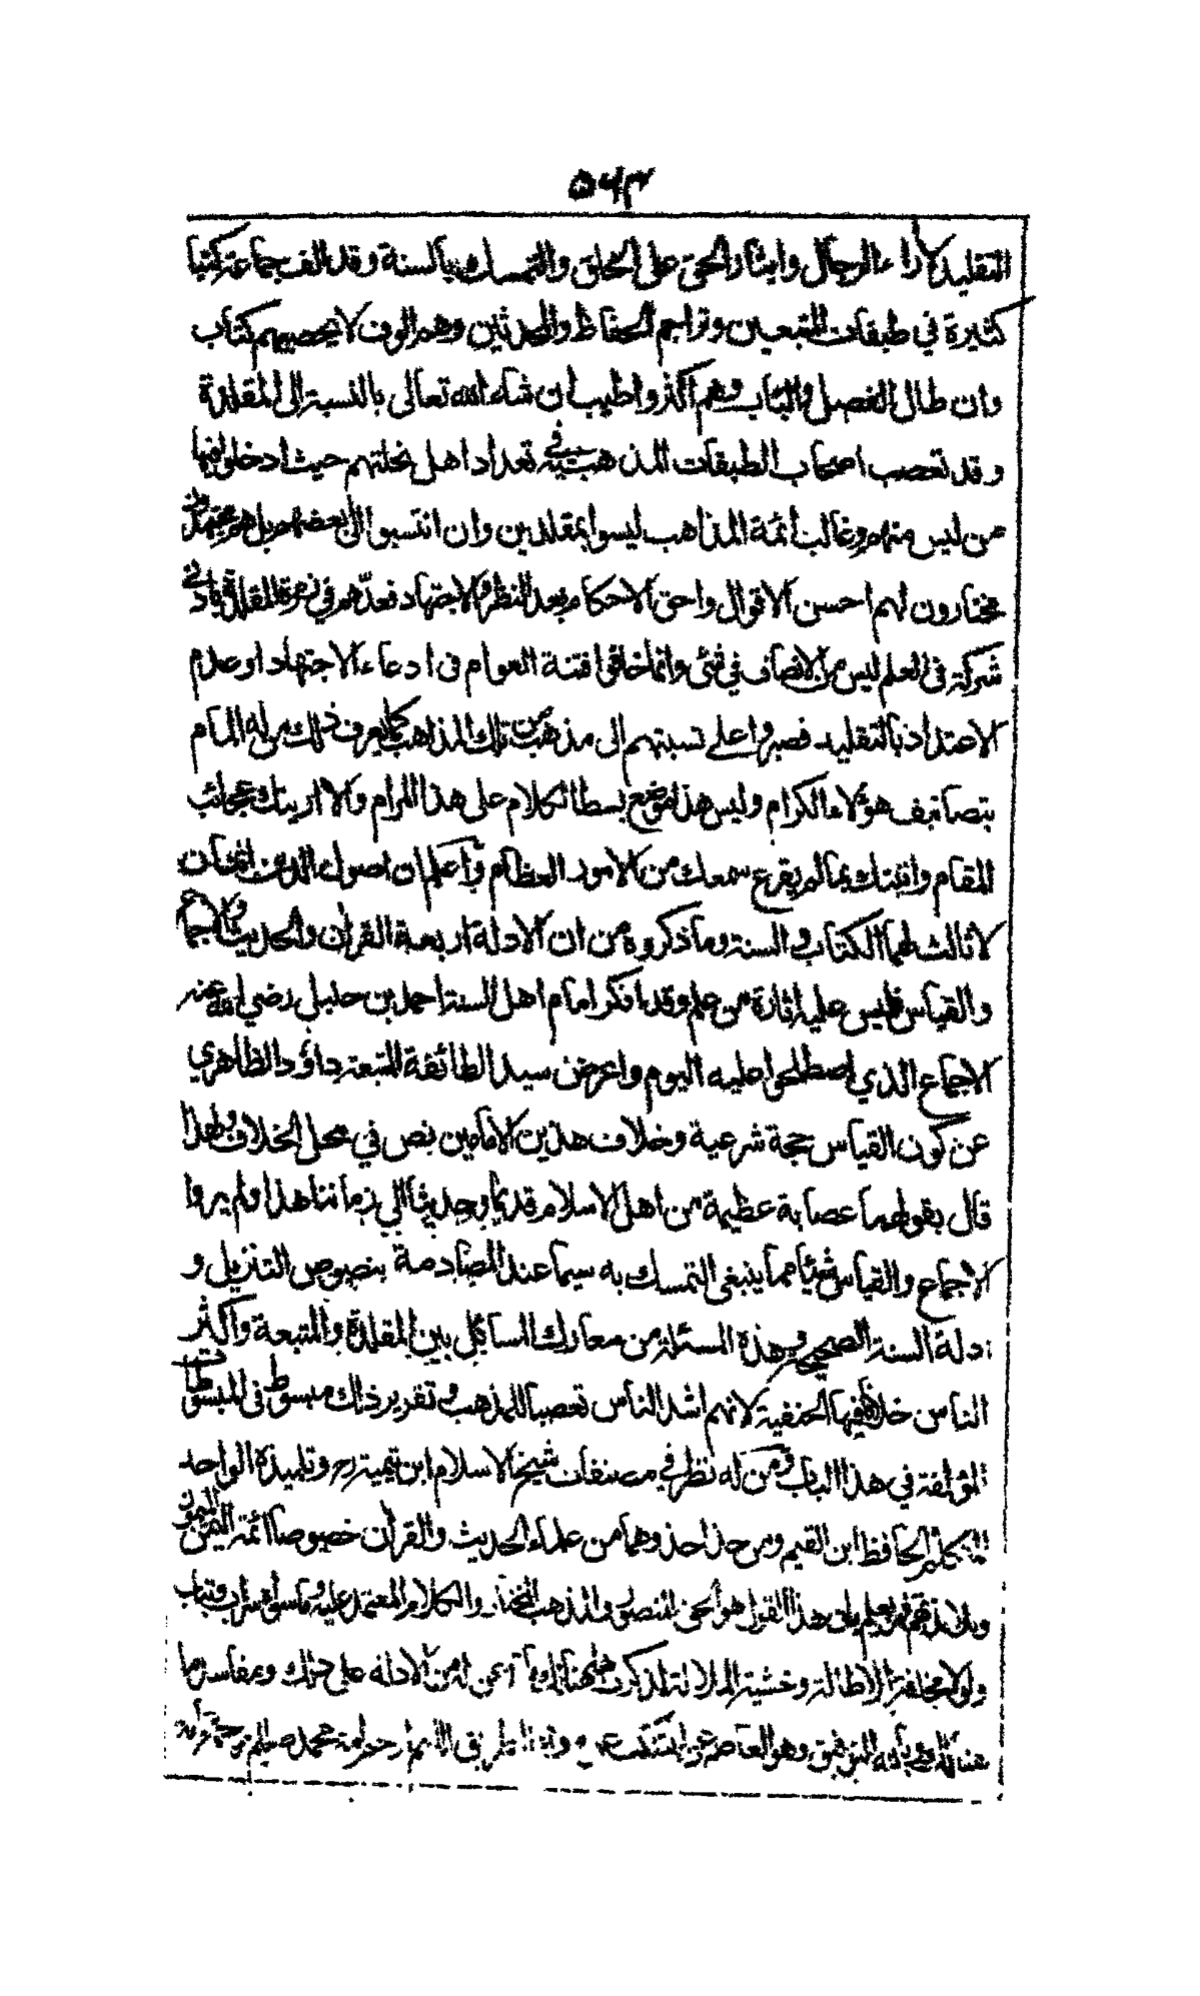 ٥٦٣
التقليد لآراء الرجال وايثار الحق على الخلق والتمسك بالسنة وقد الف جماعة كتبا
كثيرة في طبقات المتبعين وتراجم الحفاظ والمحدثين وهم الوف لا يحصيهم كتاب
وان طال الفصل والباب وهم اكثر واطيب ان شاء الله تعالى بالنسبة الى المقلدة
وقد تعصب اصحاب الطبقات المذهبية في تعداد اهل نحلتهم حيث ادخلوا فيها
من ليس منهم وغالب ائمة المذاهب ليسوا بمقلدين وان انتسبوا الى بعضهم بل هم مجتهدون
مختارون لهم احسن الاقوال واحق الاحكام بعد النظر والاجتهاد فعدّهم في زمرة المقلدة بادنى
شركة في العلم ليس من الانصاف في شئ وانما خافوا فتنة العوام في ادعاء الاجتهاد او عدم
الاعتداد بالتقليد فصبروا على نسبتهم الى مذهب من تلك المذاهب كما يعرف ذلك من له المام
بتصانيف هؤلاء الكرام وليس هذا موضع بسط الكلام على هذا المرام والا اريتك عجائب
المقام واتيتك بما لم يقرع سمعك من الامور العظام واعلم ان اصول الدين اثنان
لا ثالث لهما الكتاب والسنة وما ذكروه من ان الادلة اربعة القرآن والحديث والاجماع
والقياس فليس عليه اثارة من علم وقد انكر امام اهل السنة احمد بن حنبل رضي الله عنه
الاجماع الذي اصطلحوا عليه اليوم واعرض سيد الطائفة المتبعة داؤد الظاهري
عن كون القياس حجة شرعية وخلاف هذين الامامين نص في محل الخلاف ولهذا
قال بقولهما عصابة عظيمة من اهل الاسلام قديما وحديثا الى زماننا هذا ولم يروا
الاجماع والقياس شيئا مما ينبغي التمسك به سيما عند المصادمة بنصوص التنزيل و
ادلة السنة الصحيحة وهذه المسئلة من معارك المسائل بين المقلدة والمتبعة واكثر
الناس خلافا فيها الحنفية لانهم اشد الناس تعصبا للمذهب وتقرير ذلك مبسوط في المبسوطات
المؤلفة في هذا الباب ومن له نظر في مصنفات شيخ الاسلام ابن تيمية رح وتلميذه الواحد
المتكلم الحافظ ابن القيم ومن حذا حذوهما من علماء الحديث والقرآن خصوصا ائمة اليمن الميمون
وتلامذتهم يعلم ان هذا القول هو الحق المنصور والمذهب المختار والكلام المعتمد عليه وما سواه سراب وتباب
ولولا مخافة الاطالة وخشية الملالة لذكرت ههنا من الادلة على ذلك ومفاسد ما
هنالك وبالله التوفيق وهو العاصم عن